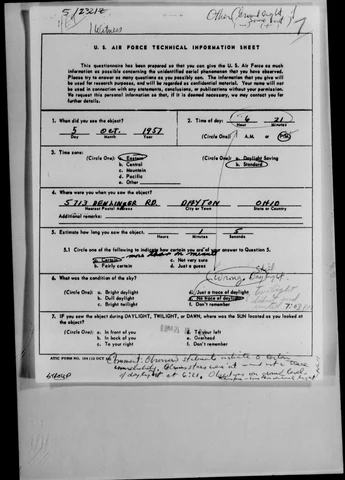 1 Witness
U. S. AIR FORCE TECHNICAL INFORMATION SHEET
This questionnaire has been prepared so that you can give the U. S. Air Force as much
information as possible concerning the unidentified aerial phenomenon that you have observed.
Please try to answer as many questions as you possibly can. The information that you give will
be used for research purposes, and will be regarded as confidential material. Your name will not
be used in connection with any statements, conclusions, or publications without your permission.
We request this personal information so that, if it is deemed necessary, we may contact you for
further details.
1. When did you see the object?
5 OCT. 1957
Day Month Year
2. Time of day: 6 21
Hour Minutes
(Circle One): A.M. or P.M.
3. Time zone:
(Circle One): a. Eastern
b. Central
c. Mountain
d. Pacific
e. Other
(Circle One): a. Daylight Saving
b. Standard
4. Where were you when you saw the object?
5713 RD. DAYTON OHIO
Nearest Postal Address City or Town State or Country
Additional remarks:
5. Estimate how long you saw the object. 1 5
Hours Minutes Seconds
5.1 Circle one of the following to indicate how certain you are of your answer to Question 5.
more than a minute
a. Certain c. Not very sure
b. Fairly certain d. Just a guess
6. What was the condition of the sky?
Wrong Daylight.
(Circle One): a. Bright daylight d. Just a trace of daylight
b. Dull daylight e. No trace of daylight
c. Bright twilight f. Don't remember
7. IF you saw the object during DAYLIGHT, TWILIGHT, or DAWN, where was the SUN located as you looked at
the object?
(Circle One): a. In front of you d. To your left
b. In back of you e. Overhead
c. To your right f. Don't remember
Comment: Observers statements indicate a certain
unreliability.
of daylight at 6:21.